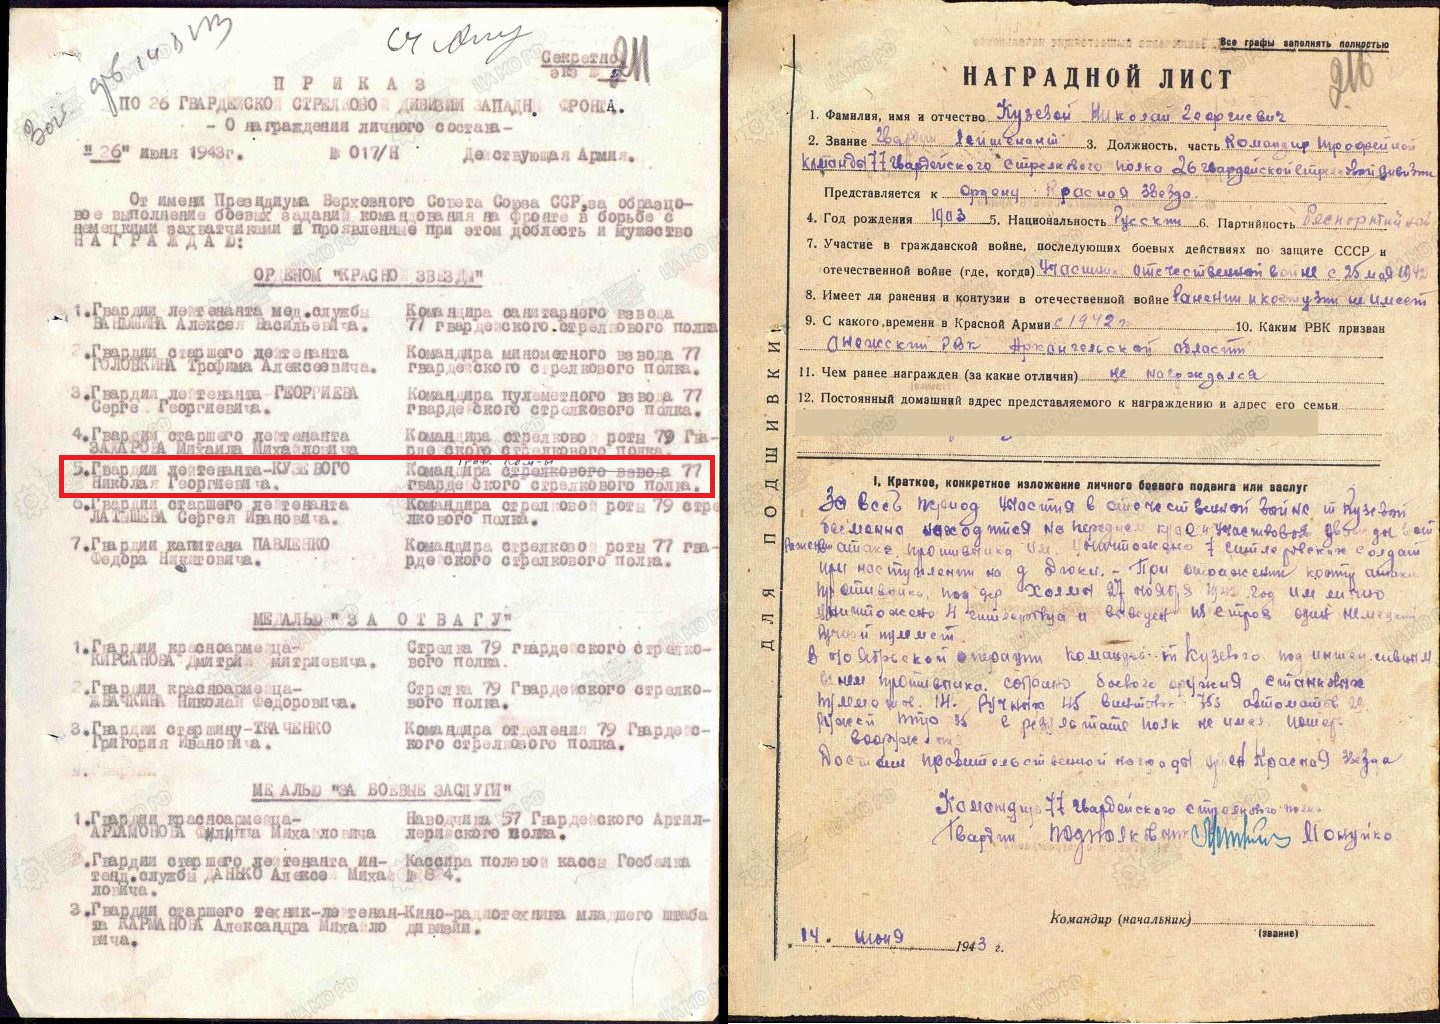 Секретно
экз №2
211
ПРИКАЗ
ПО 26 ГВАРДЕЙСКОЙ СТРЕЛКОВОЙ ДИВИЗИИ ЗАПАДН. ФРОНТА.
- О награждении личного состава-
"26" июня 1943г. № 017/Н Действующая Армия.
От имени Президиума Верховного Совета Союза ССР, за образцо-
вое выполнение боевых заданий командования на фронте в борьбе с
немецкими захватчиками и проявленные при этом доблесть и мужество
НАГРАЖДАЮ:
ОРДЕНОМ "КРАСНОЙ ЗВЕЗДЫ"
1. Гвардии лейтенанта мед. службы Командира санитарного взвода
ВАНЮШИНА Алексея Васильевича. 77 гвардейского стрелкового полка
2. Гвардии старшего лейтенанта Командира минометного взвода 77
ГОЛОВКИНА Трофима Алексеевича. гвардейского стрелкового полка.
3. Гвардии лейтенанта-ГЕОРГИЕВА Командира пулеметного взвода 77
Серге Георгиевича. гвардейского стрелкового полка.
4. Гвардии старшего лейтенанта Командира стрелково роты 79 Гва-
ЗАХАРОВА Михаила Михайловича рдейского стрелкового полка.
троф. ком-ы
5. Гвардии лейтенанта-КУЗЕВОГО Командира стрелкового взвода 77
Николая Георгиевича. гвардейского стрелкового полка.
6. Гвардии старшего лейтенанта Командира стрелковой роты 79 стре
ЛАТЫШЕВА Сергея Ивановича. лкового полка.
7. Гвардии капитана ПАВЛЕНКО Командира стрелковой роты 77 гва-
Федора Никитовича. рдейского стрелкового полка.
МЕДАЛЬЮ "ЗА ОТВАГУ"
1. Гвардии красноармейца- Стрелка 79 гвардейского стрелко-
КИРСАНОВА Дмитрия митриевича. вого полка.
2. Гвардии красноармейца- Стрелка 79 Гвардейского стрелко-
ЖВАЧКИНА Николая Федоровича. вого полка.
3. Гвардии старшину-ТКАЧЕНКО Командира отделения 79 Гвардейс-
Григория Ивановича. кого стрелкового полка.
МЕДАЛЬЮ "ЗА БОЕВЫЕ ЗАСЛУГИ"
1. Гвардии красноармейца- Наводчика 57 Гвардейского Артил-
АРТАМОНОВА Филиппа Михайловича лерийского полка.
2. Гвардии старшего лейтенанта ин- Кассира полевой кассы Госбанка
тенд. службы ДАНЬКО Алексе Михай № 824.
ловича.
3. Гвардии старшего техник-лейтенан- Кино-радиотехника младшего штаба
та КАРМАНОВА Александра Михайло дивизии.
вича.
Все графы заполнять полностью
216
НАГРАДНОЙ ЛИСТ
1. Фамилия, имя и отчество Кузевой Николай Георгиевич
2. Звание Гвардии Лейтенант 3. Должность, часть Командир трофейной
команды 77 гвардейского стрелкового полка 26 гвардейской стрелковой дивизии
Представляется к Ордену Красная Звезда
4. Год рождения 1903 5. Национальность Русский 6. Партийность Беспартийный
7. Участие в гражданской войне, последующих боевых действиях по защите СССР и
отечественной войне (где, когда) Участник отечественной войне с 25 мая 1942
8. Имеет ли ранения и контузии в отечественной войне Ранений и контузий не имеет
9. С какого времени в Красной Армии с 1942 г 10. Каким РВК призван
Онежский РВК Архангельской области
11. Чем ранее награжден (за какие отличия) не награждался
12. Постоянный домашний адрес представляемого к награждению и адрес его семьи
ДЛЯ ПОДШИВКИ
I. Краткое, конкретное изложение личного боевого подвига или заслуг
За весь период участия в отечественной войне т Кузевой
находится на переднем крае участвовал дважды в от
ражении атаке противника им уничтожено 7 гитлеровских солдат
при наступлении на д. При отражении контр атаки
противника, под дер Холмы 27 ноября 1942 год им лично
уничтожено 4 гитлеровца и выведен из строя один немецкий
ручной пулемет.
В ноябрьской операции командой т Кузевого под интенсивным
огнем противника собрано боевого оружия станковых
пулеметов 14. Ручных 45 винтовок 353 автоматов
ружей ПТО 35 в результате полк не имел потерь
вооружения
Достоин правительственной награды орден Красная Звезда
Командир 77 гвардейского стрелкового полка
Гвардии подполковник Мочуйко
Командир (начальник)
(звание)
14. июня 1943 г.